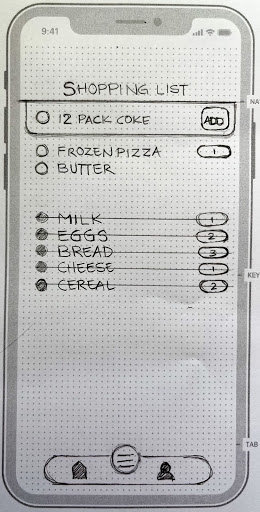 9:41
SHOPPING LIST
NA
12 PACK COKE ADD
FROZEN PIZZA 1
BUTTER
MILK 1
EGGS 2
BREAD 3
CHEESE 1
KEY
CEREAL 2
TAB